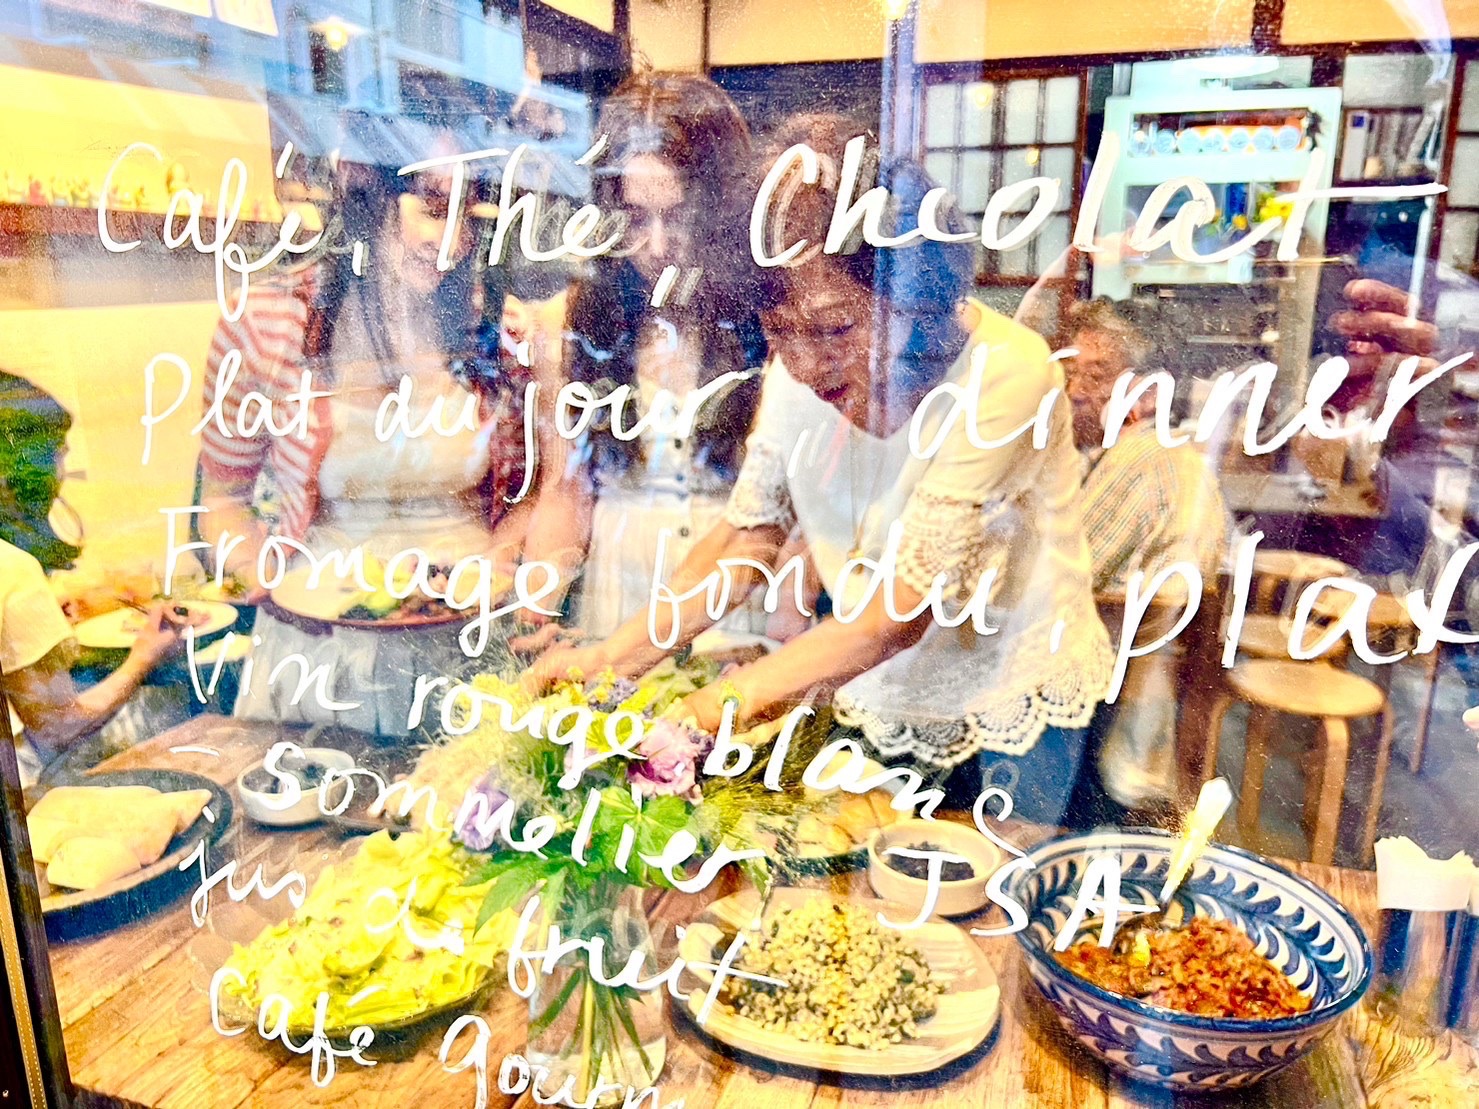 Café, Thé, Chcolat
Plat du jour, dinner
Fromage fondu, plat
Vin rouge blanc
- Sommelier JSA
jus de fruit
Café gourm